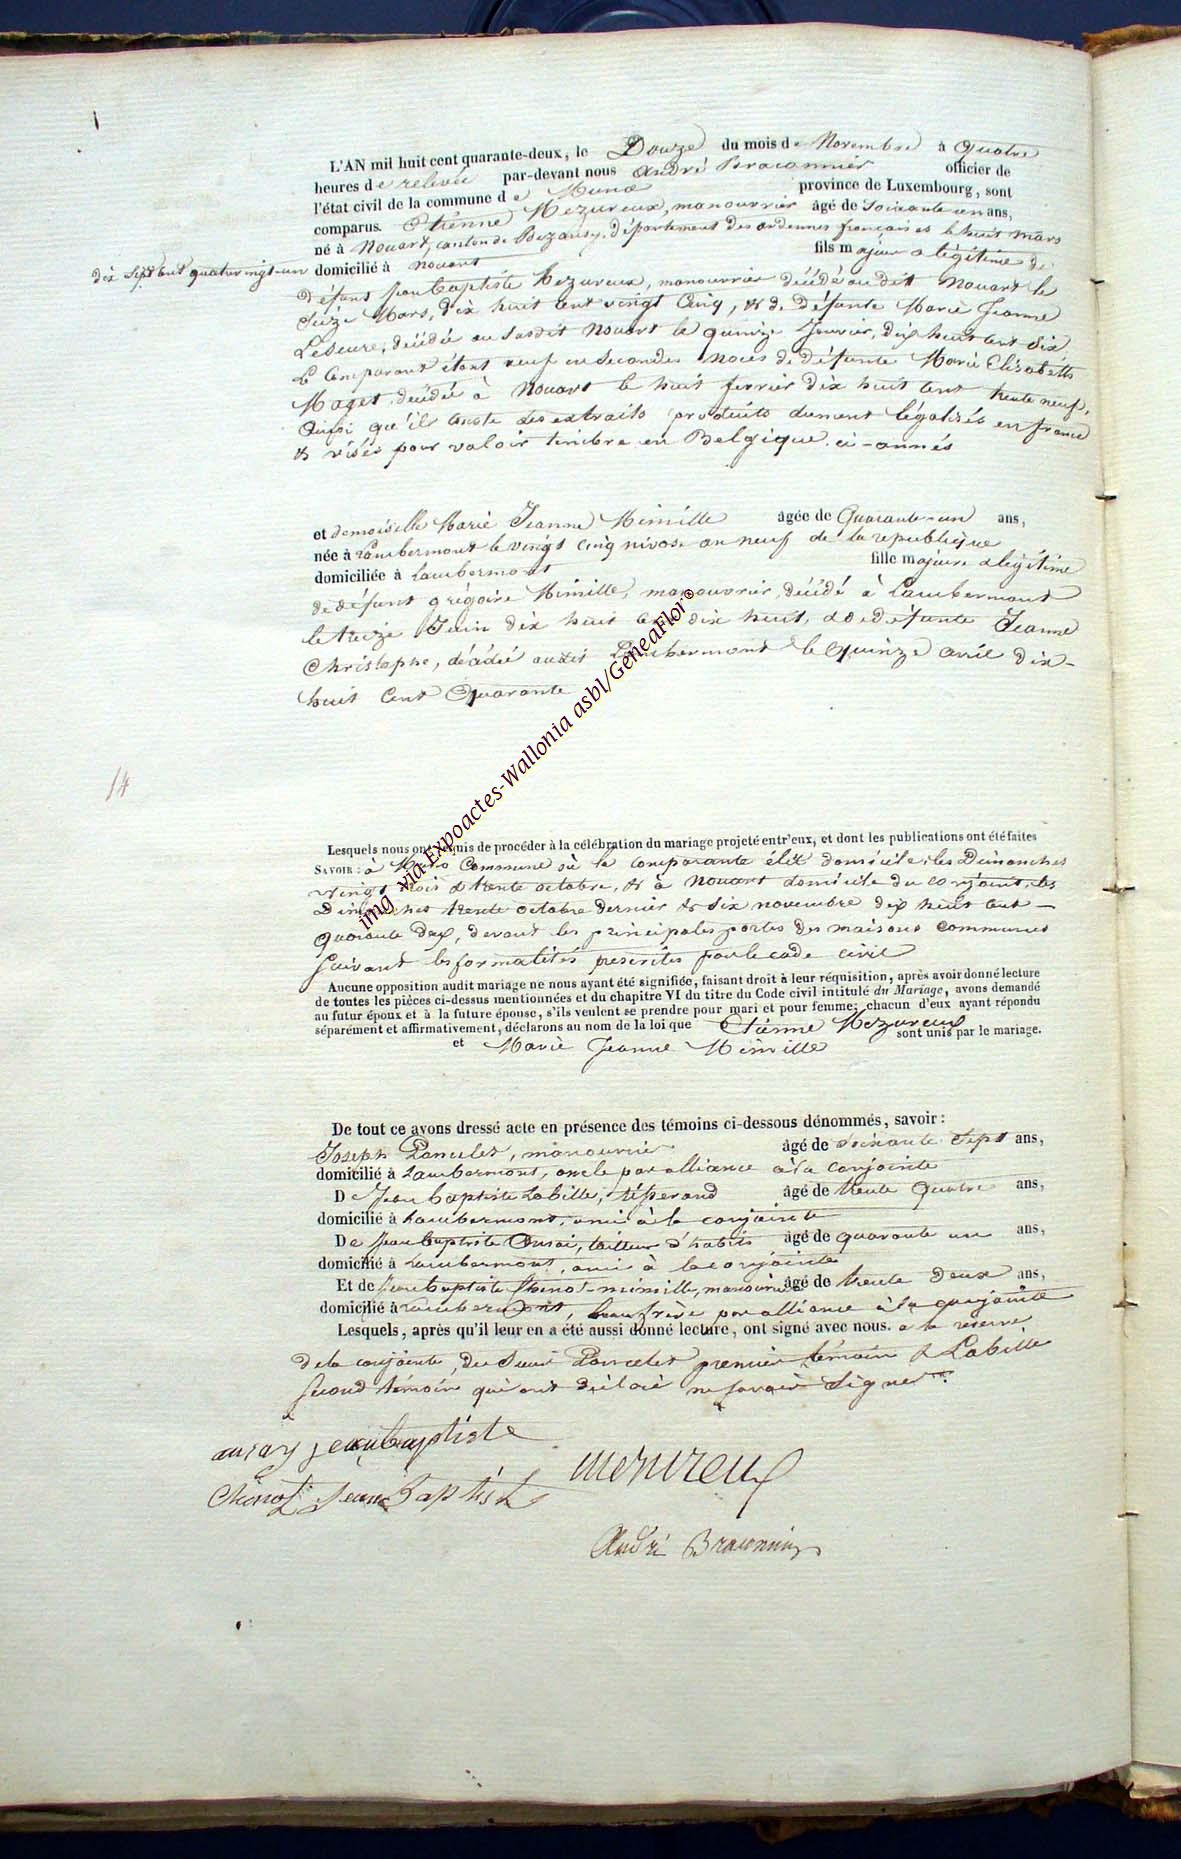 L'AN mil huit cent quarante-deux, le Douze du mois de Novembre à Quatre
heures de relevée par-devant nous André Braconnier officier de
l'état civil de la commune de Muno province de Luxembourg, sont
comparus. Etiénne Mezureux, manouvrier âgé de soixante un ans,
né à Nouart, canton de Buzancy, département des ardennes françaises le huit mars
dix sept cent quatrevingt-un
domicilié à nouart fils majeur & légitime de
Défunt jean baptiste Mezureux, manouvrier décédé au dit Nouart le
Seize Mars, dix huit cent vingt Cinq, & de Défunte Marie Jeanne
décédée au susdit Nouart le quinze Janvier, dix huit cent dix
le Comparant étant veuf en secondes noces de défunte Marie Elisabeth
Maget décédée à Nouart le huit fevrier dix huit cent trente neuf,
Ainsi qu'il conste des extraits produits dument légalisés en france
& visés pour valoir timbre en Belgique. ci-annés
et demoiselle Marie Jeanne Miniille âgée de Quarante-un ans,
née à Lambermont le vingt cinq nivose an neuf de la republique
domiciliée à Lambermont fille majeure & légitime
de défunt grégoire Miniille, manouvrier, décédé à Lambermont
le treize Juin dix huit cent dix huit, & de défunte Jeanne
Christophe, décédée audit Lambermont le Quinze avril dix-
huit Cent Quarante
14
Lesquels nous ont requis de procéder à la célébration du mariage projeté entr'eux, et dont les publications ont été faites
SAVOIR : à Muno Commune où la comparante élit domicile les Dimanches
vingt trois & trente octobre, & à Nouart domicile du conjoint, les
Dimanches trente octobre dernier & six novembre dix huit cent
quarante deux, devant les principales portes des maisons communes
suivant les formalités prescrites par le code civil
Aucune opposition audit mariage ne nous ayant été signifiée, faisant droit à leur réquisition, après avoir donné lecture
de toutes les pièces ci-dessus mentionnées et du chapitre VI du titre du Code civil intitulé du Mariage, avons demandé
au futur époux et à la future épouse, s'ils veulent se prendre pour mari et pour femme; chacun d'eux ayant répondu
séparément et affirmativement, déclarons au nom de la loi que Etiénne Mezureux
et Marie Jeanne Miniille sont unis par le mariage.
De tout ce avons dressé acte en présence des témoins ci-dessous dénommés, savoir :
Joseph Poncelet, manouvrier âgé de soixante sept ans,
domicilié à Lambermont, oncle par alliance à la conjointe
De Jean baptiste Labille, âgé de trente quatre ans,
domicilié à Lambermont, ami à la conjointe
De Jean baptiste tailleur d'habits âgé de quarante un ans,
domicilié à Lambermont, ami à la conjointe
Et de jean baptiste Chenot-miniille, manouvrier âgé de trente deux ans,
domicilié à Lambermont, beau frère par alliance à la conjointe
Lesquels, après qu'il leur en a été aussi donné lecture, ont signé avec nous. a la réserve
de la conjointe, du sieur Poncelet premier témoin & Labille
second témoin qui ont déclaré ne savoir signer
ausay jean baptiste
Chenot Jean Baptiste
mezureux
André Braconnier
img via Expoactes-Wallonia asbl/GeneaFlor©